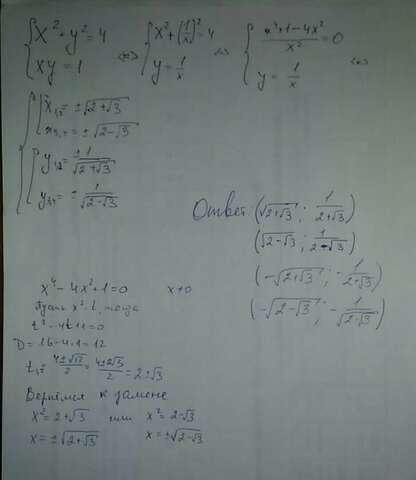 { x² + y² = 4 {xy = 1 <=> { x² + (1/x)² = 4 { y = 1/x <=> { (x⁴+1-4x²)/x² = 0 { y = 1/x <=>
x₁,₂ = ±√(2+√3)
x₃,₄ = ±√(2-√3)
y₁,₂ = ± 1/√(2+√3)
y₃,₄ = ± 1/√(2-√3)
Ответ (√(2+√3) ; 1/√(2+√3))
(√(2-√3) ; 1/√(2-√3))
(-√(2+√3) ; -1/√(2+√3))
(-√(2-√3) ; -1/√(2-√3))
x⁴ - 4x² + 1 = 0 x ≠ 0
Пусть x² = t, тогда
t² - 4t + 1 = 0
D = 16 - 4·1 = 12
t₁,₂ = (4±√12)/2 = (4±2√3)/2 = 2±√3
Вернёмся к замене
x² = 2+√3 или x² = 2-√3
x = ±√(2+√3) x = ±√(2-√3)